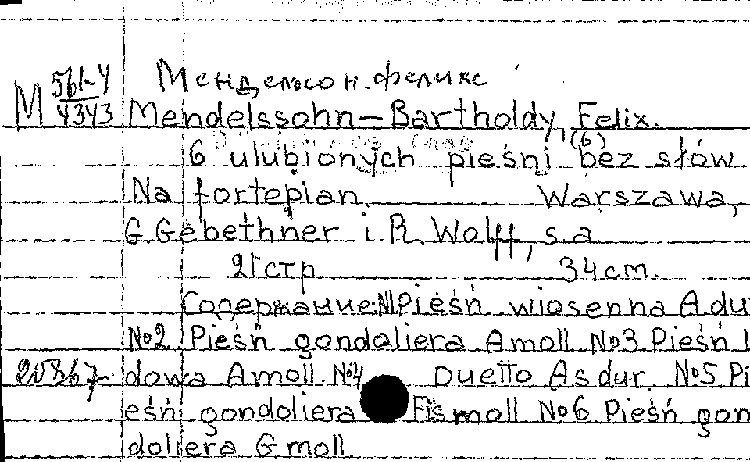 М 561-4
4343
Мендельсон. феликс
Mendelssohn-Bartholdy, Felix.
6 ulubionych pieśni (6) bez słów
Na fortepian. Warszawa,
G. Gebethner i R. Wolff, s.a
21 стр 34 cm.
Содержание: №1 Pieśń wiosenna A du
№2 Pieśń gondoliera A moll №3 Pieśń l
20867 dowa A moll. №4 Duetto As dur. №5 Pi
eśń gondoliera Fis moll №6 Pieśń gon
doliera G moll